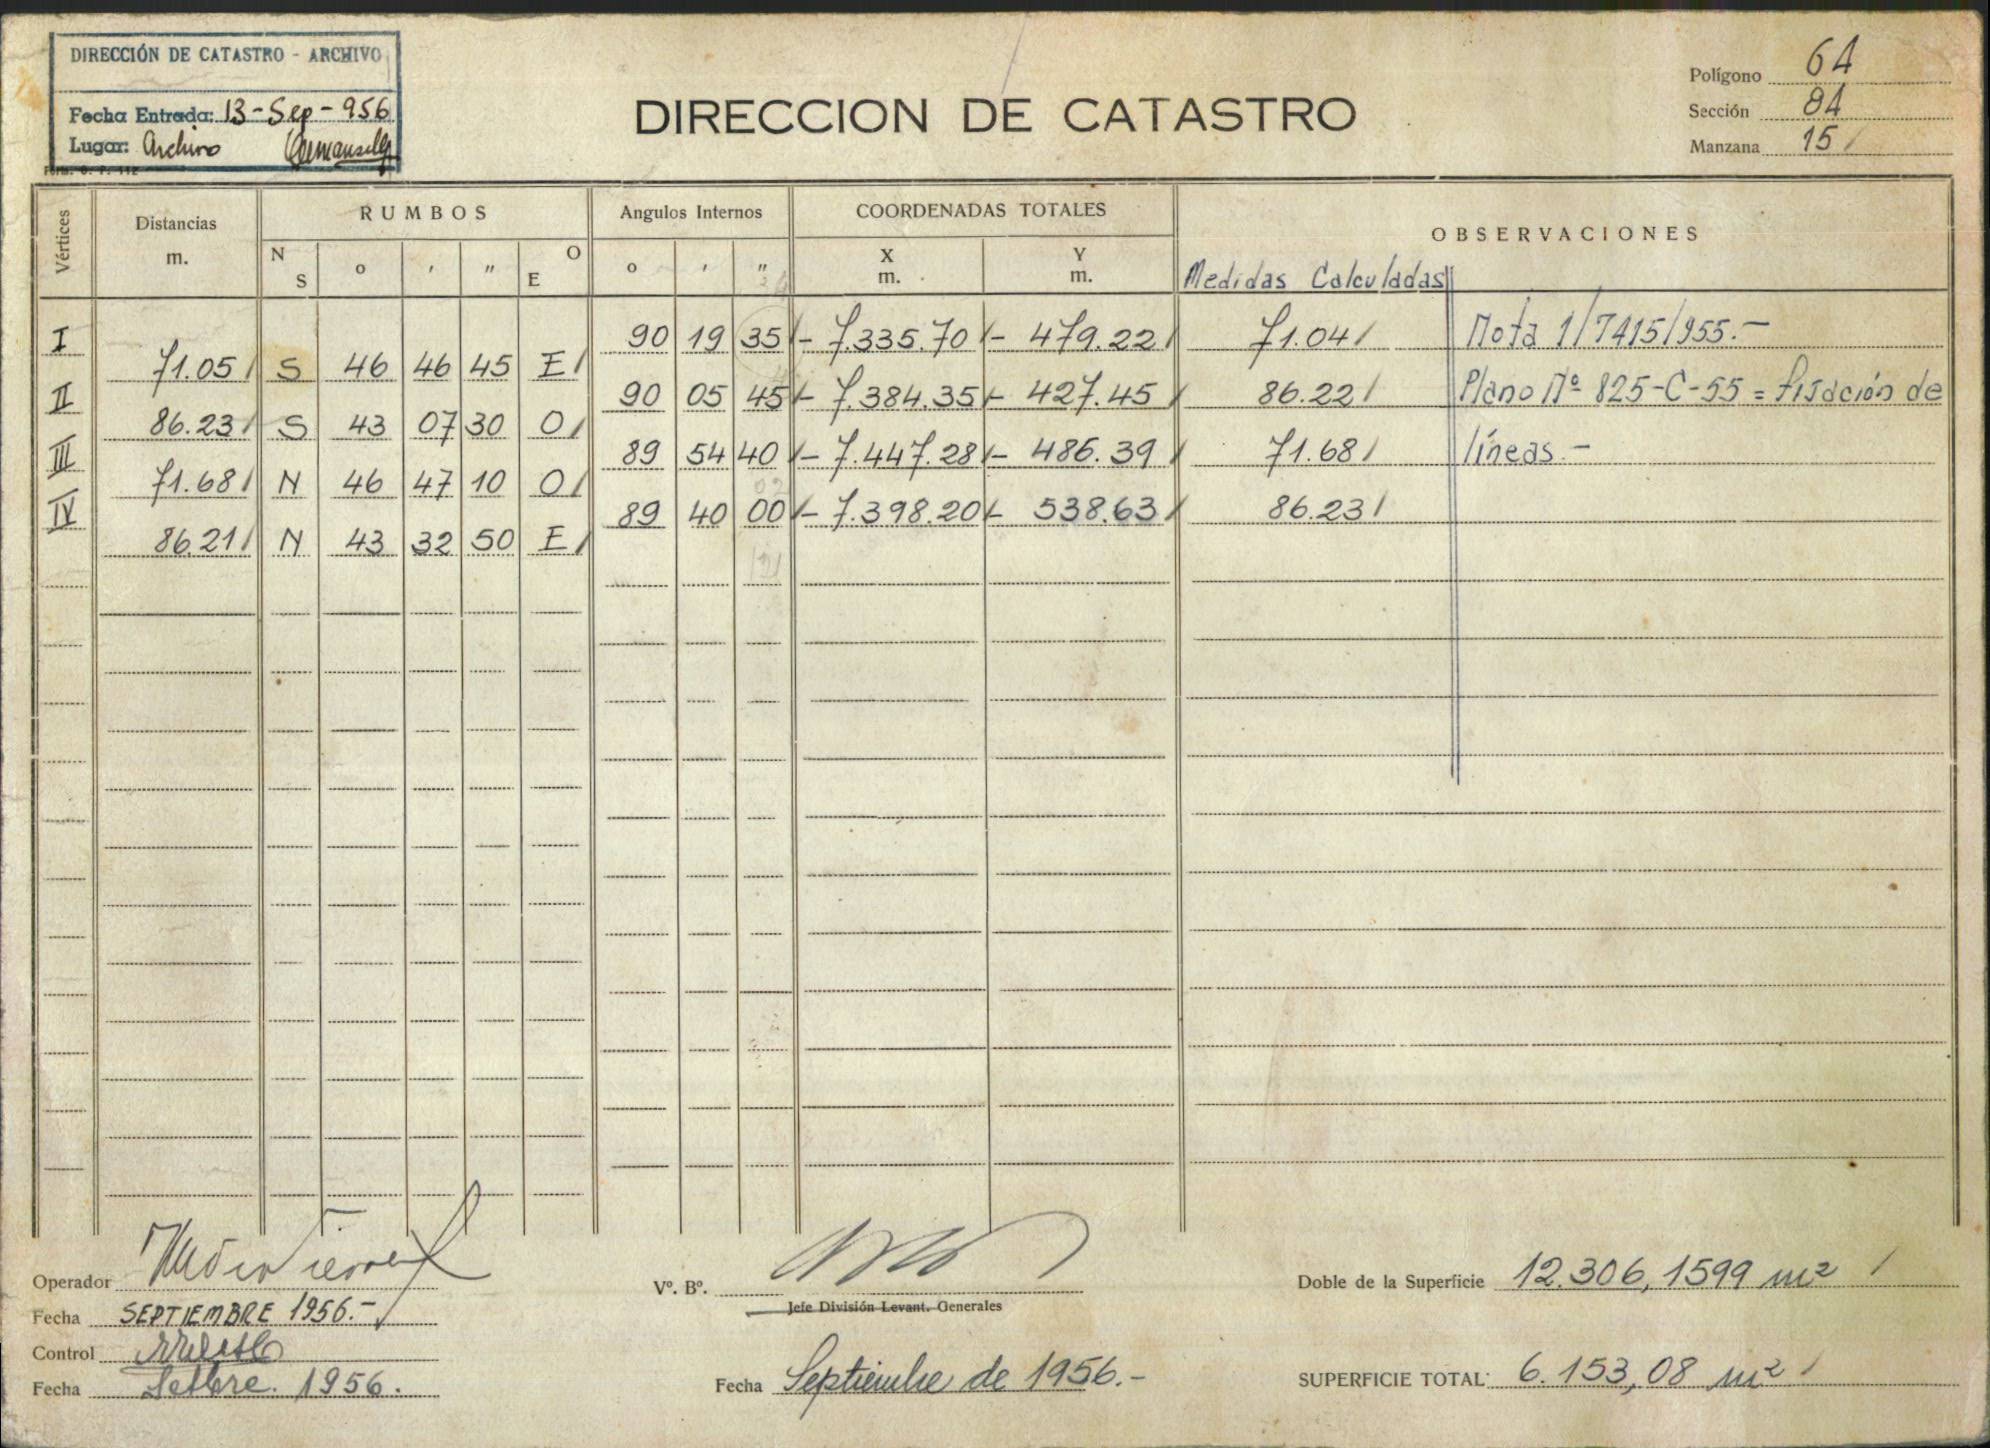 DIRECCIÓN DE CATASTRO - ARCHIVO
Fecha Entrada: 13-Sep-956
Lugar: Archivo
Form. C. P. 112
DIRECCION DE CATASTRO
Polígono 64
Sección 84
Manzana 15 /
Vértices Distancias m. RUMBOS Angulos Internos COORDENADAS TOTALES OBSERVACIONES
N S o ' " O E o ' " X m. Y m. Medidas Calculadas
I 90 19 35 /- 7.335.70 /- 479.22 / 71.04 / Nota 1/7415/955.-
71.05 / S 46 46 45 E /
II 90 05 45 /- 7.384.35 /- 427.45 / 86.22 / Plano Nº 825-C-55 = fijación de
86.23 / S 43 07 30 O /
III 89 54 40 /- 7.447.28 /- 486.39 / 71.68 / líneas.-
71.68 / N 46 47 10 O /
IV 89 40 00 /- 7.398.20 /- 538.63 / 86.23 /
86.21 / N 43 32 50 E /
Operador
Fecha SEPTIEMBRE 1956.-
Control
Fecha Setbre. 1956.
Vº. Bº.
Jefe División Levant. Generales
Fecha Septiembre de 1956.-
Doble de la Superficie 12.306,1599 m² /
SUPERFICIE TOTAL: 6.153,08 m² /